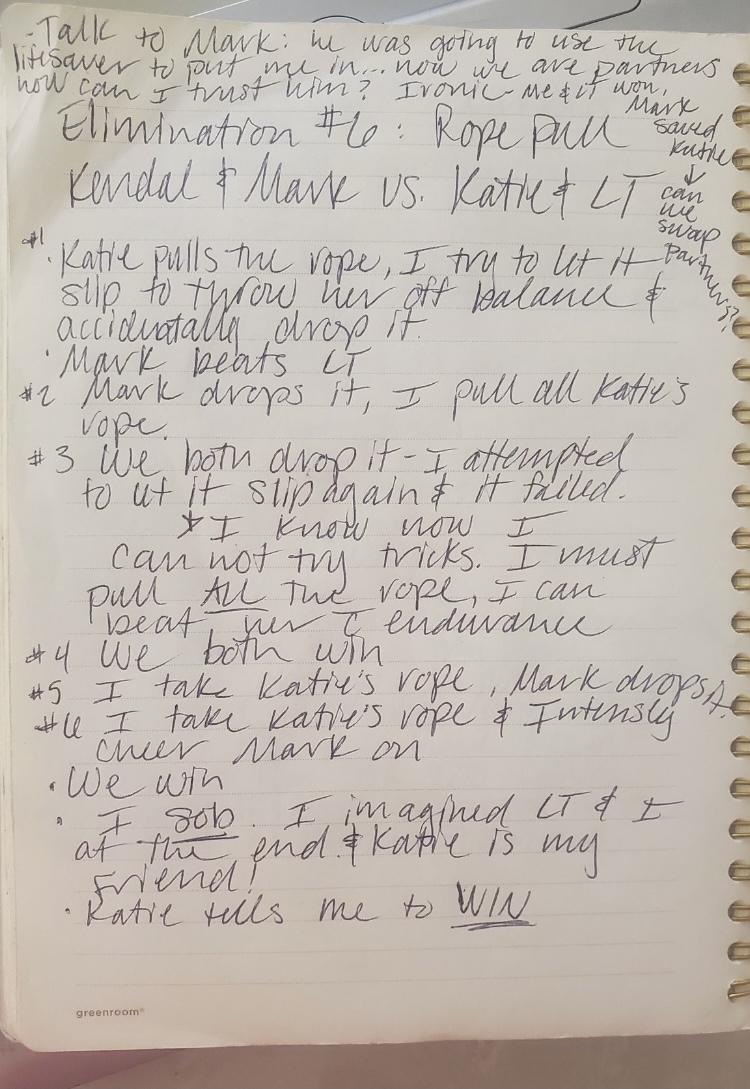 - Talk to Mark: he was going to use the
lifesaver to put me in... now we are partners
how can I trust him? Ironic - me & it won.
Mark
saved
Katie
↓
can
we
swap
partners?!
Elimination #6: Rope pull
Kendal & Mark vs. Katie & LT
#1
· Katie pulls the rope, I try to let it
slip to throw her off balance &
accidentally drop it.
· Mark beats LT
#2 Mark drops it, I pull all Katie's
rope.
#3 We both drop it - I attempted
to let it slip again & it failed.
* I know now I
can not try tricks. I must
pull ALL the rope, I can
beat her c̄ endurance
#4 We both win
#5 I take Katie's rope, Mark drops it.
#6 I take Katie's rope & Intensly
cheer Mark on
· We win
· I sob. I imagined LT & I
at the end & Katie is my
friend!
· Katie tells me to WIN
greenroom®